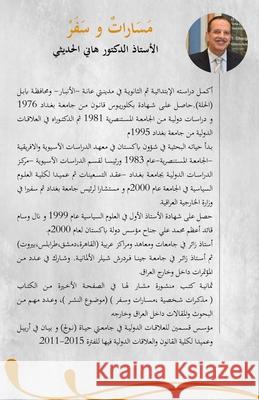 مَسَاراتٌ و سَفَرْ
الأستاذ الدكتور هاني الحديثي
أكمـل دراسته الإبتدائية ثم الثانوية في مدينتي عانة -الأنبار- ومحافظة بابل
(الحلة).حاصل على شهادة بكلوريوس قانون من جامعة بغداد 1976
و دراسات دولية من الجامعة المستنصرية 1981 ثم الدكتوراه في العلاقات
الدولية من جامعة بغداد 1995م
بدأ حياته البحثية في شؤون باكستان في معهد الدراسات الآسيوية والافريقية
-الجامعة المستنصرية-عام 1983 ورئيسا لقسم الدراسات الآسيوية -مركز
الدراسات الدولية بجامعة بغداد -عقد التسعينات ثم عميدا لكلية العلوم
السياسية في الجامعة عام 2000م و مستشارا لرئيس جامعة بغداد ثم سفيرا في
وزارة الخارجية العراقية.
حصل على شهادة الأستاذ الأول في العلوم السياسية عام 1999 و نال وسام
قائد أعظم محمد علي جناح مؤسس دولة باكستان لعام 2000م.
أستاذ زائر في جامعات ومعاهد ومراكز عربية (القاهرة،دمشق،طرابلس،بيروت)
ثم أستاذ زائر في جامعة جينا فردرش شيلر الألمانية. وشارك في عدد من
المؤتمرات داخل وخارج العراق.
ثمانية كتب منشورة مشار لها في الصفحة الأخيرة من الكتاب
( مذكرات شخصية ،مسارات وسفر ) (موضوع النشر )، وعدد مهم من
البحوث والمقالات داخل العراق وخارجه.
مؤسس قسمين للعلاقات الدولية في جامعتي حياة (نولج) و بيان في أربيل
وعميدا لكلية القانون والعلاقات الدولية فيها للفترة 2015-2011.